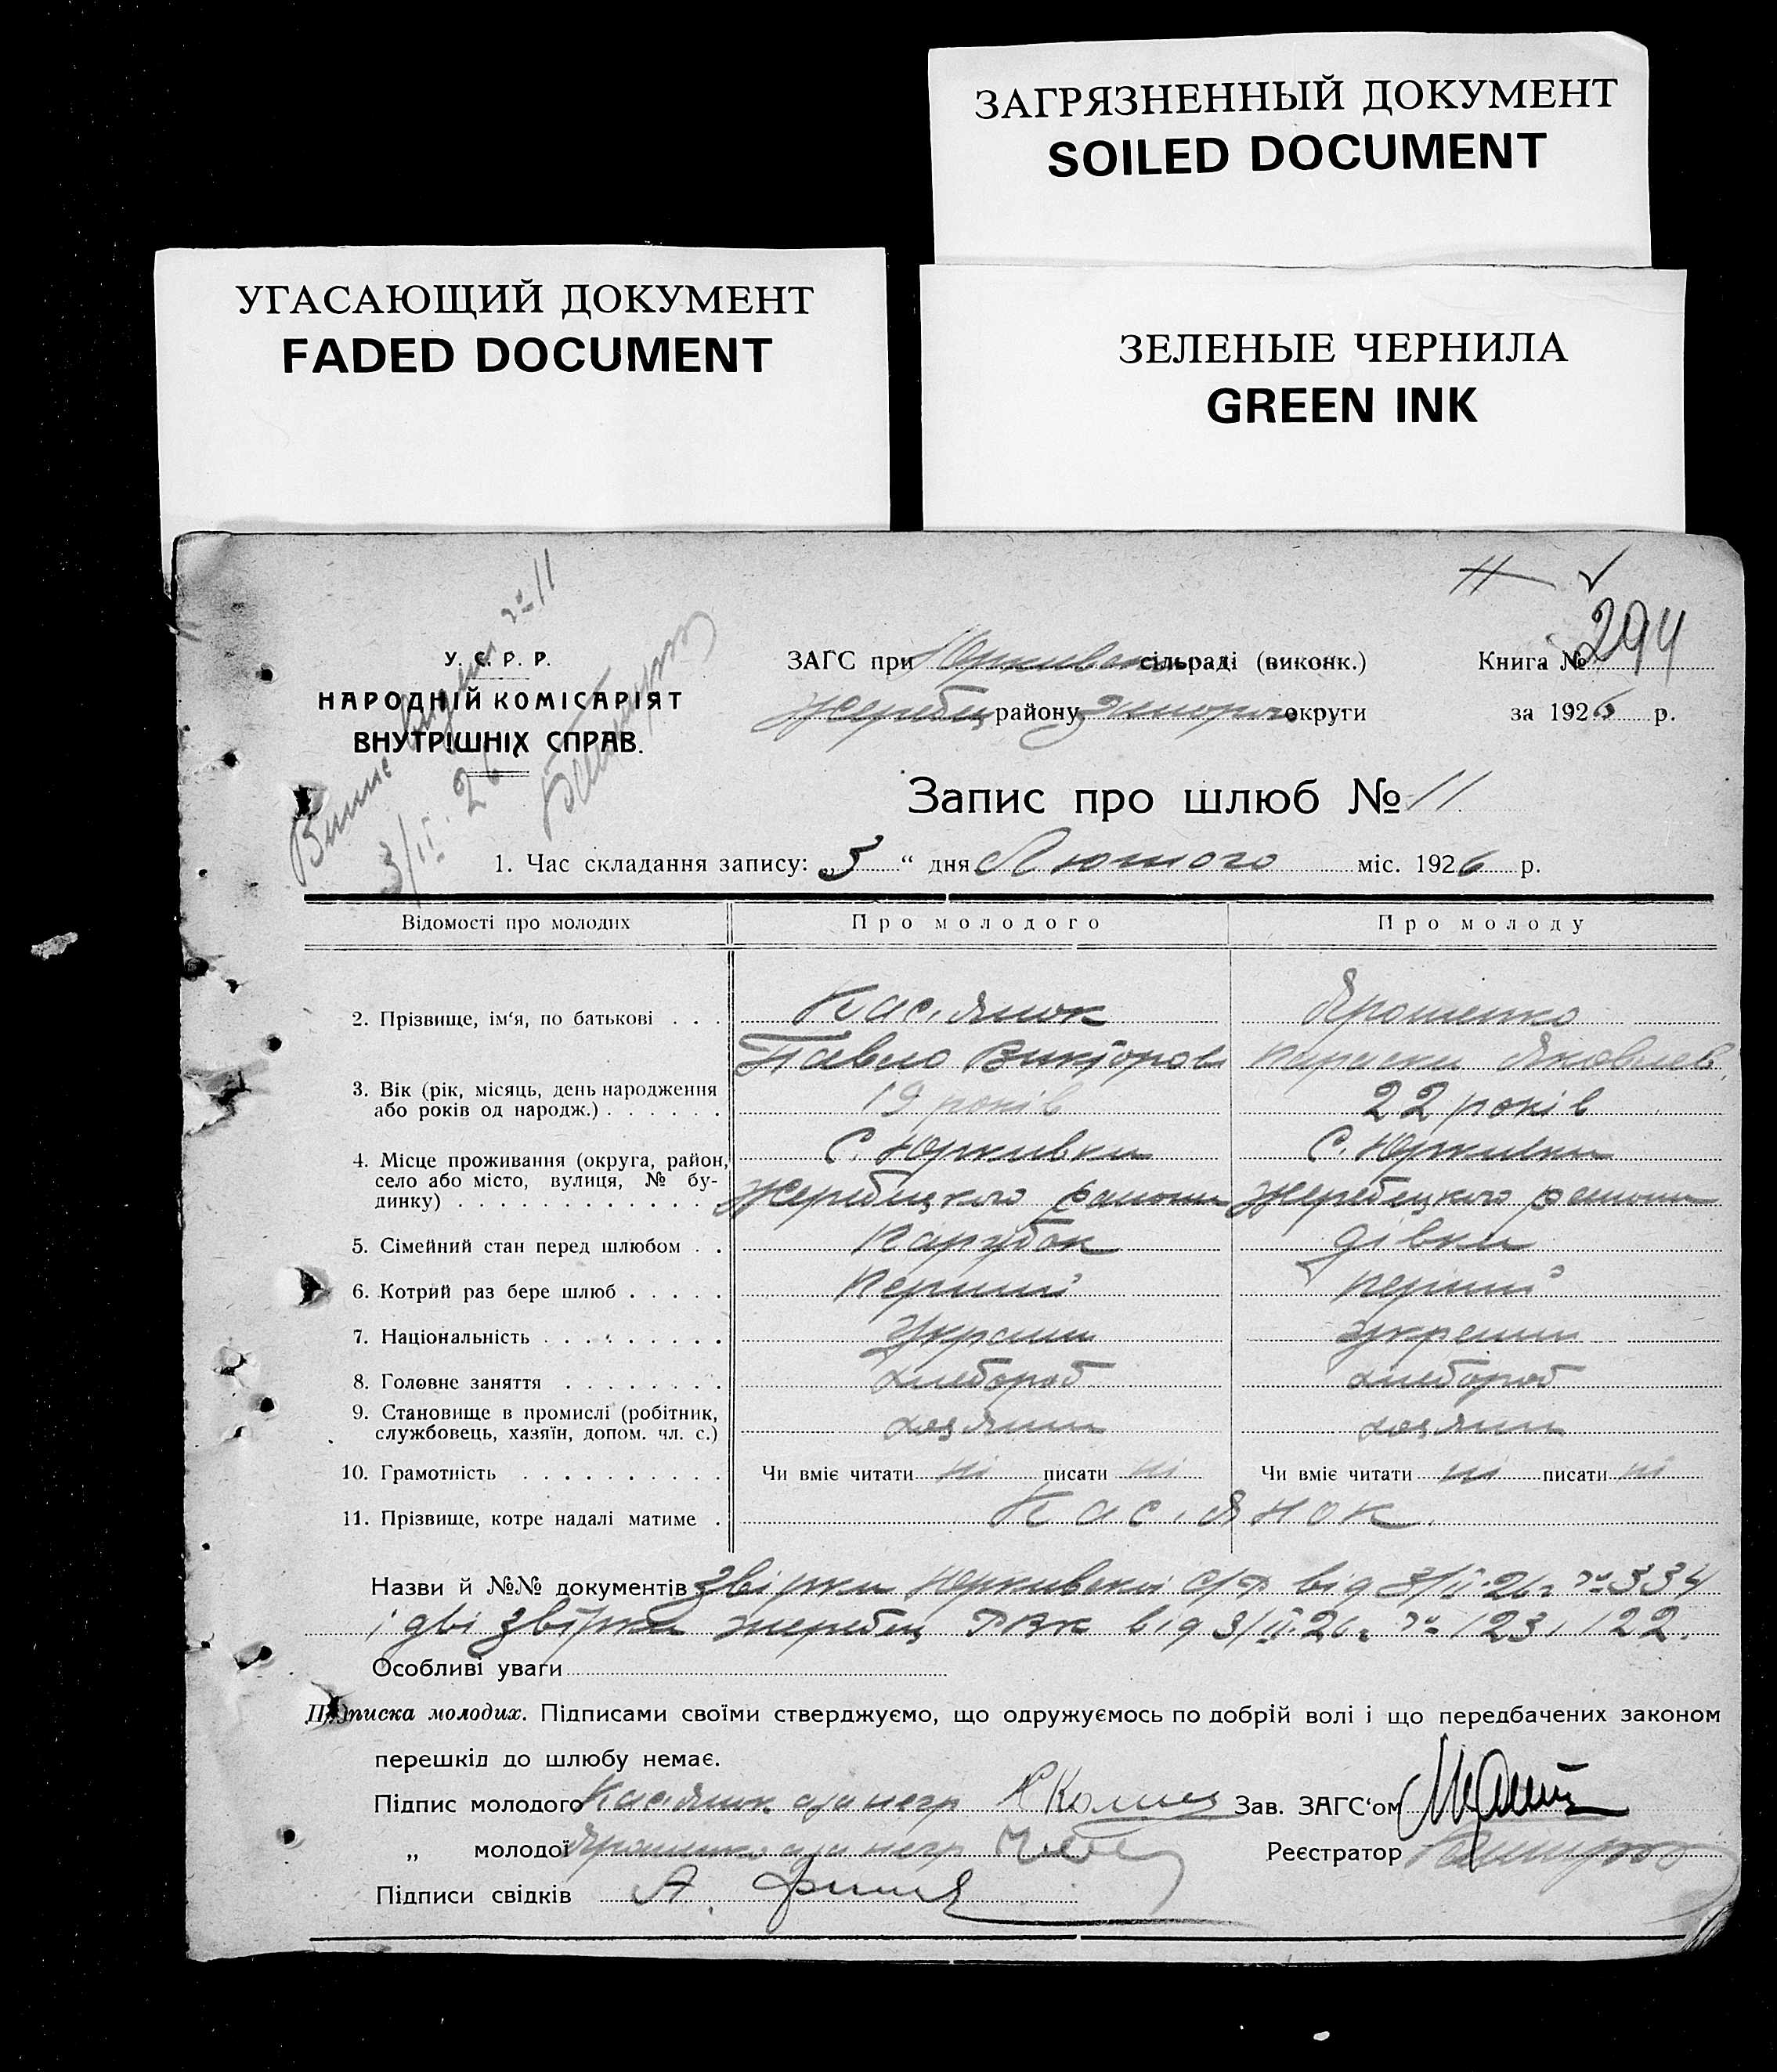 ЗАГРЯЗНЕННЫЙ ДОКУМЕНТ
SOILED DOCUMENT
УГАСАЮЩИЙ ДОКУМЕНТ
FADED DOCUMENT
ЗЕЛЕНЫЕ ЧЕРНИЛА
GREEN INK
№ 11
3/II 26
У. С. Р. Р.
НАРОДНІЙ КОМІСАРІЯТ
ВНУТРІШНІХ СПРАВ.
ЗАГС при Юркивск сільраді (виконк.)
Книга № 294
Жеребец району Запоріж округи
за 1926 р.
Запис про шлюб № 11
1. Час складання запису: „3“ дня Лютого міс. 1926 р.
Відомості про молодих Про молодого Про молоду
2. Прізвище, ім'я, по батькові . . . Кас'янок Ярошенко
Павло Вікторов Параски Яковлев.
3. Вік (рік, місяць, день народження
або років од народж.) . . . . . . 19 років 22 років
4. Місце проживання (округа, район, С. Юркивки С. Юркивки
село або місто, вулиця, № бу-
динку) . . . . . . . . . . . . . Жеребецкого району Жеребецкого району
5. Сімейний стан перед шлюбом . . Парубок дівка
6. Котрий раз бере шлюб . . . . . Перший перший
7. Національність . . . . . . . . . Украин украин
8. Головне заняття . . . . . . . . хлебороб хлебороб
9. Становище в промислі (робітник,
службовець, хазяїн, допом. чл. с.) хозяин хозяин
10. Грамотність . . . . . . . . . . Чи вміє читати ні писати ні Чи вміє читати ні писати ні
11. Прізвище, котре надалі матиме . Кас'янок.
Назви й №№ документів Звірки Юркивской с/р від 3/II-26 г № 334
і дві звірки жеребец РВК від 3/II-26 г № 123, 122.
Особливі уваги
Підписка молодих. Підписами своїми стверджуємо, що одружуємось по добрій волі і що передбачених законом
перешкід до шлюбу немає.
Підпис молодого Кас'янок а за негр Зав. ЗАГС'ом
„ молодої Ярошенко а за негр Реєстратор
Підписи свідків А.